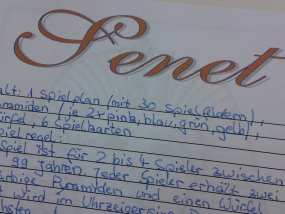 Senet
alt: 1 Spielplan (mit 30 Spielfeldern),
ramiden (je 2x pink, blau, grün, gelb),
ürfel, 6 Spielkarten
pielregel:
Spiel ist für 2 bis 4 Spieler zwischen
99 Jahren. Jeder Spieler erhält zwei
arbige Pyramiden und einen Würfel
wird im Uhrzeigersinn